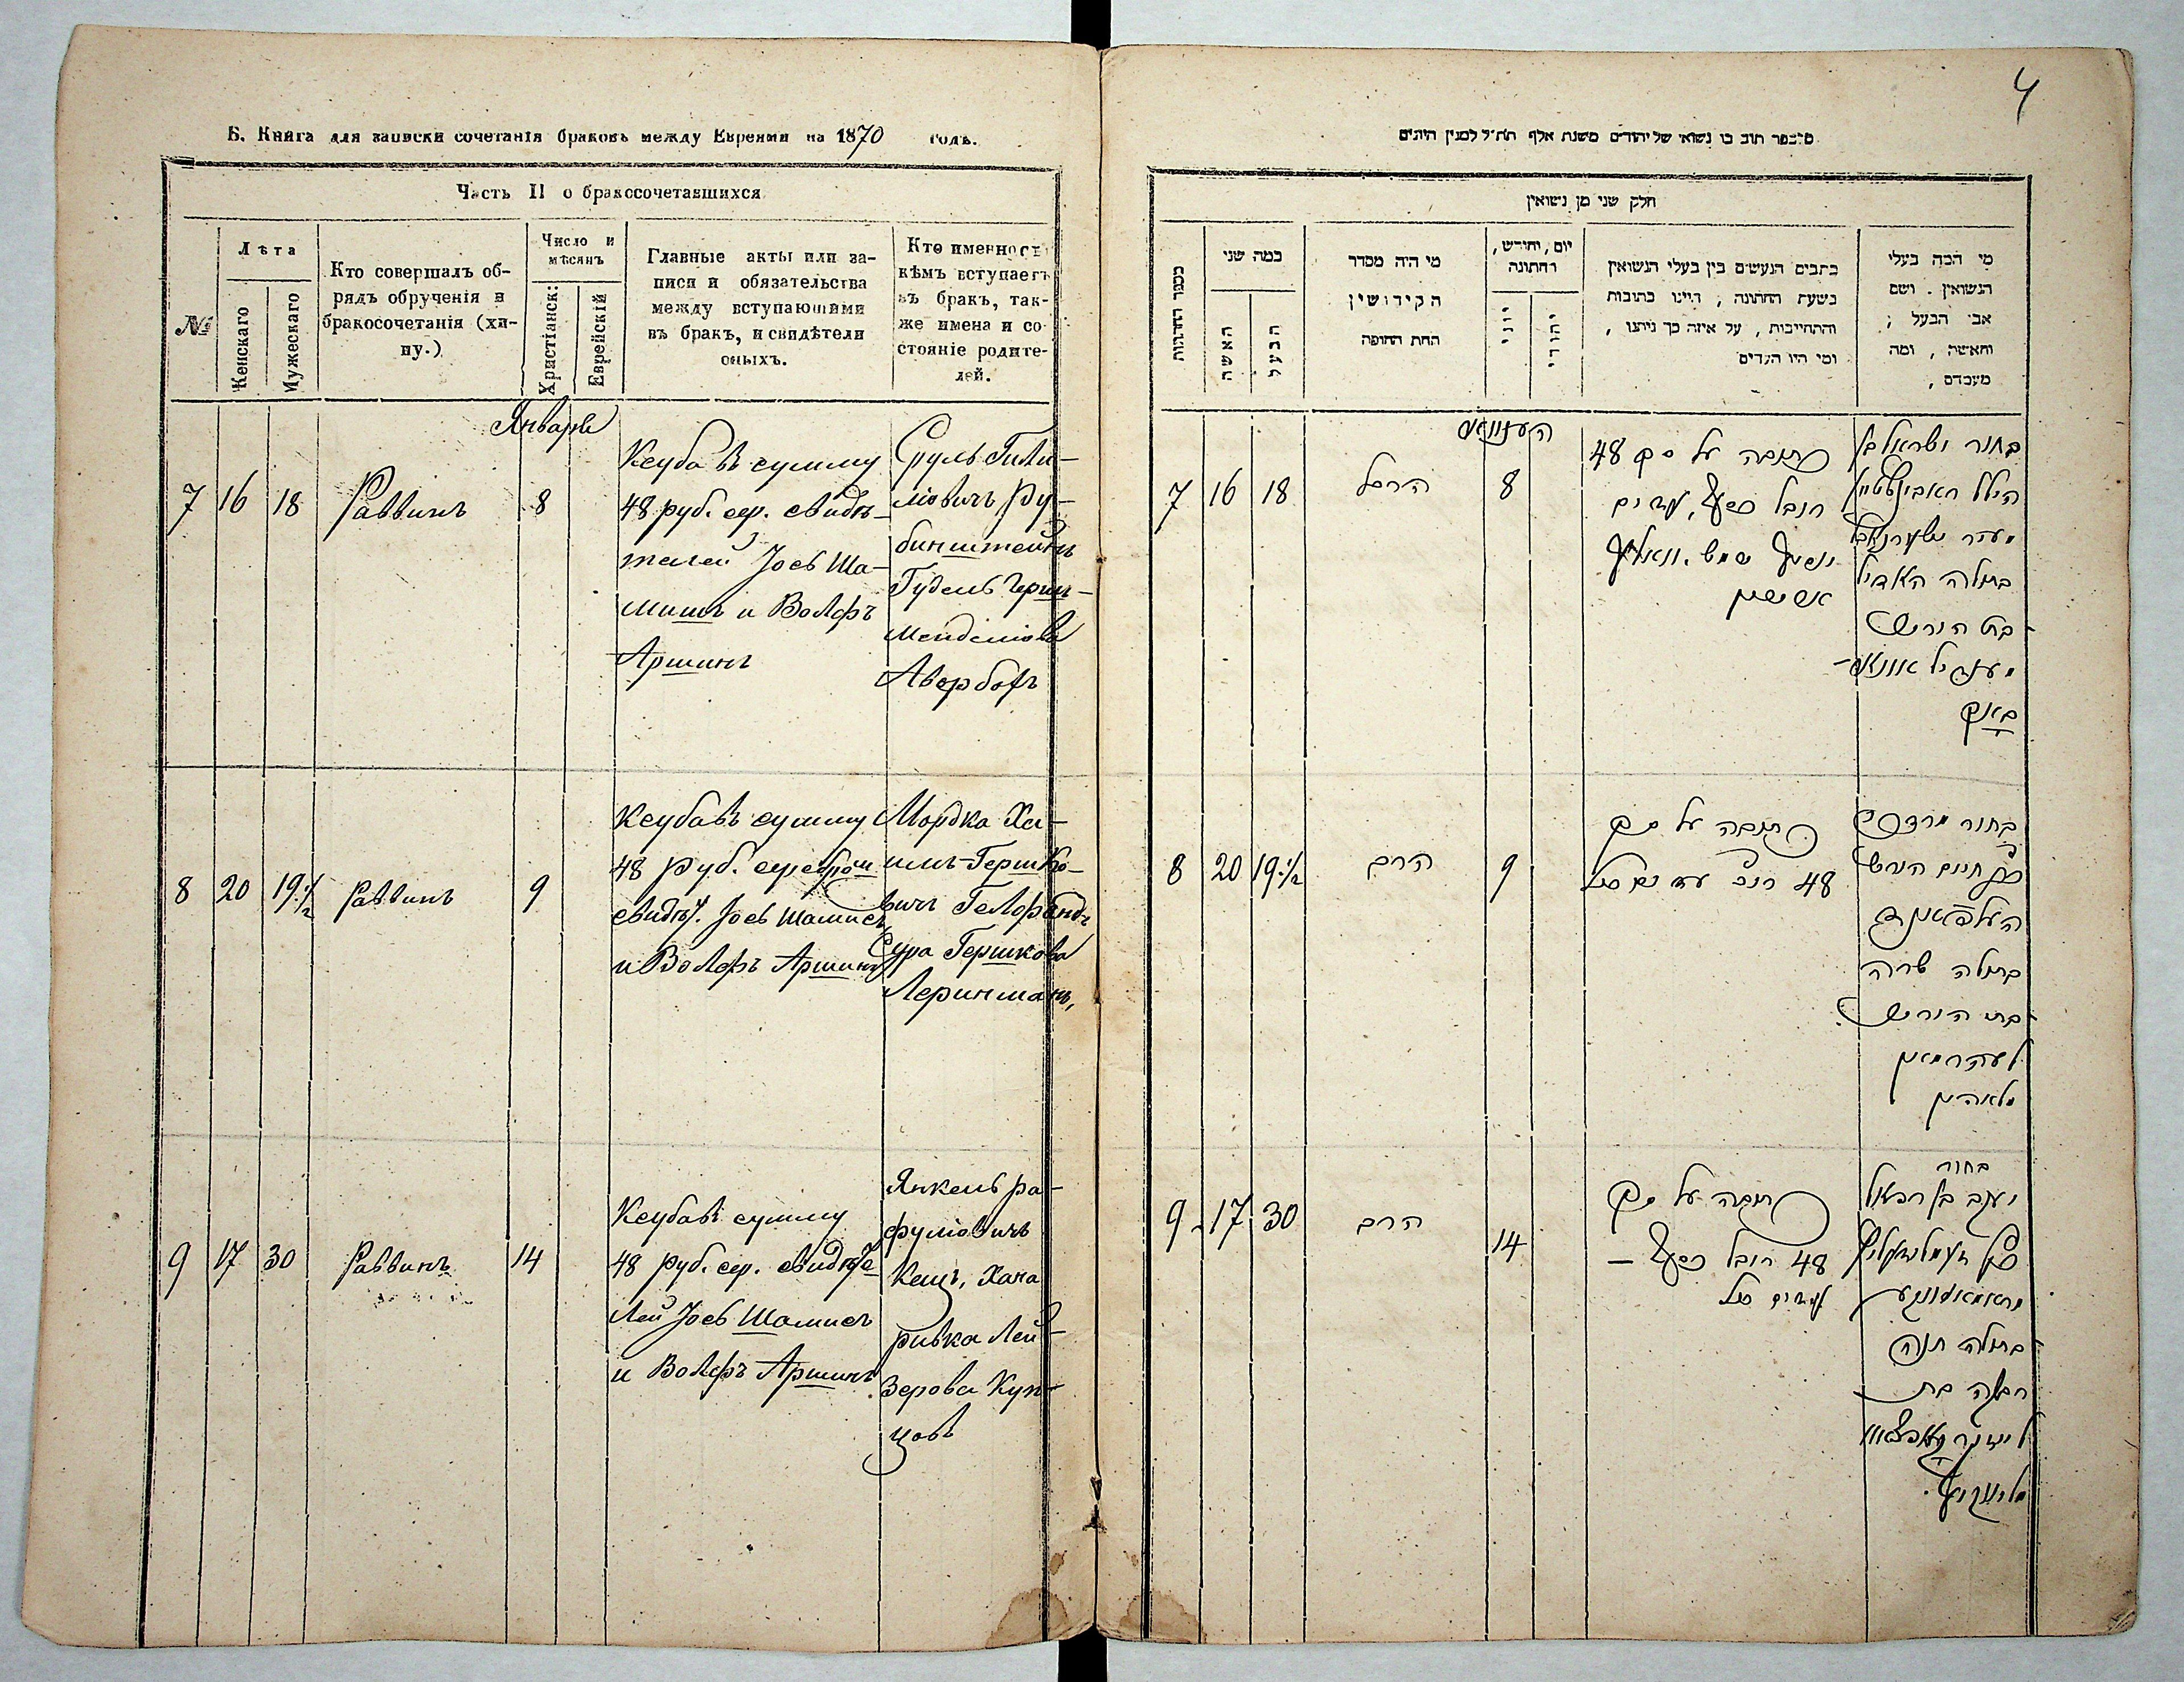 Б. Книга для записки сочетанія браковъ между Евреями на 1870 годъ.
Часть II о бракосочетавшихся
№
Лѣта
Женскаго
Мужескаго
Кто совершалъ об-
рядъ обрученія и
бракосочетанія (хи-
пу.)
Число и
мѣсяцъ
Христіанск:
Еврейскій
Главные акты или за-
писи и обязательства
между вступающими
въ бракъ, и свидѣтели
оныхъ.
Кто именно съ
кѣмъ вступаетъ
въ бракъ, так-
же имена и со-
стояніе родите-
лей.
Января
7 16 18 Раввинъ 8
Ксуба въ сумму
48 руб. сер. свидѣ-
телей Іось Ша-
мишъ и Волфъ
Аршинъ
Сруль Гилі-
міовичъ Ру-
бинштейнъ
Гудель Герш-
Мендліова
Авербохъ
8 20 19 1/2 Раввинъ 9
Ксуба въ сумму
48 руб. серебромъ
свидѣт. Іось Шамисъ
и Волфъ Аршинъ
Мордка Ха-
имъ-Гершко-
вичъ Гелфандъ
Сура Гершкова
Леринманъ,
9 17 30 Раввинъ 14
Ксуба въ сумму
48 руб. сер. свидѣте
лей Іось Шамисъ
и Волфъ Аршинъ
Янкель Ра-
фуліовичъ
Кацъ, Хана
Ривка Лей-
зерова Куп-
цовъ
4
מספר תוב בו נשואי של יהודים משנת אלף תת״ל למנין היונים
חלק שני מן נשואין
מספר החתונות
כמה שני
האשה
הבעל
מי היה מסדר
הקידושין
תחת החופה
יום, וחודש,
החתונה
יוני
יהודי
כתבים הנעשים בין בעלי הנשואין
בשעת החתונה, היינו כתובות
והתחייבות, על איזה סך ניתנו,
ומי היו העדים
מי המה בעלי
הנשואין. ושם
אבי הבעל;
והאשה, ומה
מעמדם,
7 16 18 8
כתובה על סך 48
רובל כסף, עדים
יוסף שמש. וואלף
ארשין
בחור ישראל בן
הילל ראבינשטיין
בתולה
בת הירש
מענדיל אווער-
באך
8 20 19 1/2 הרב 9
כתובה על סך
48
בחור מרדכי
חיים הירש
העלפאנד
בתולה שרה
בת הירש
9 17 30 הרב 14
כתובה על סך
48 רובל כסף –
עדים כנ״ל
בחור
יעקב בן רפאל
כץ
בתולה חנה
רבקה בת